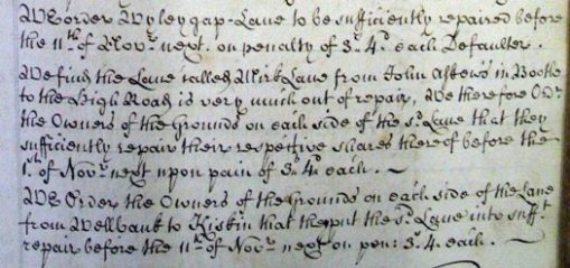 We order Wyleygap-Lane to be sufficiently repaired before
the 11th. of Novr. next. on penalty of 3s. 4d. each Defaulter.
We find the Lane called Kirk Lane from John in Bootle
to the High Road is very much out of repair, We therefore Ordr.
the Owners of the Grounds on each side of the sd. Lane that they
sufficiently repair their respective shares thereof before the
1st. of Novr. next upon pain of 3s. 4d. each.
We Order the Owners of the Grounds on each side of the Lane
from Wellbank to Kiskin that the put the sd. Lane into sufft.
repair before the 11th. of Novr. next on pen: 3s. 4. each.